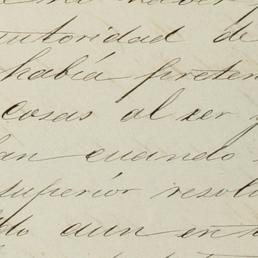 autoridad de
había preten
cosas al ser y
an cuando
superior resolu
do aun en